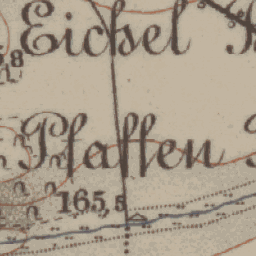 Eichel
Pfaffen
165,5